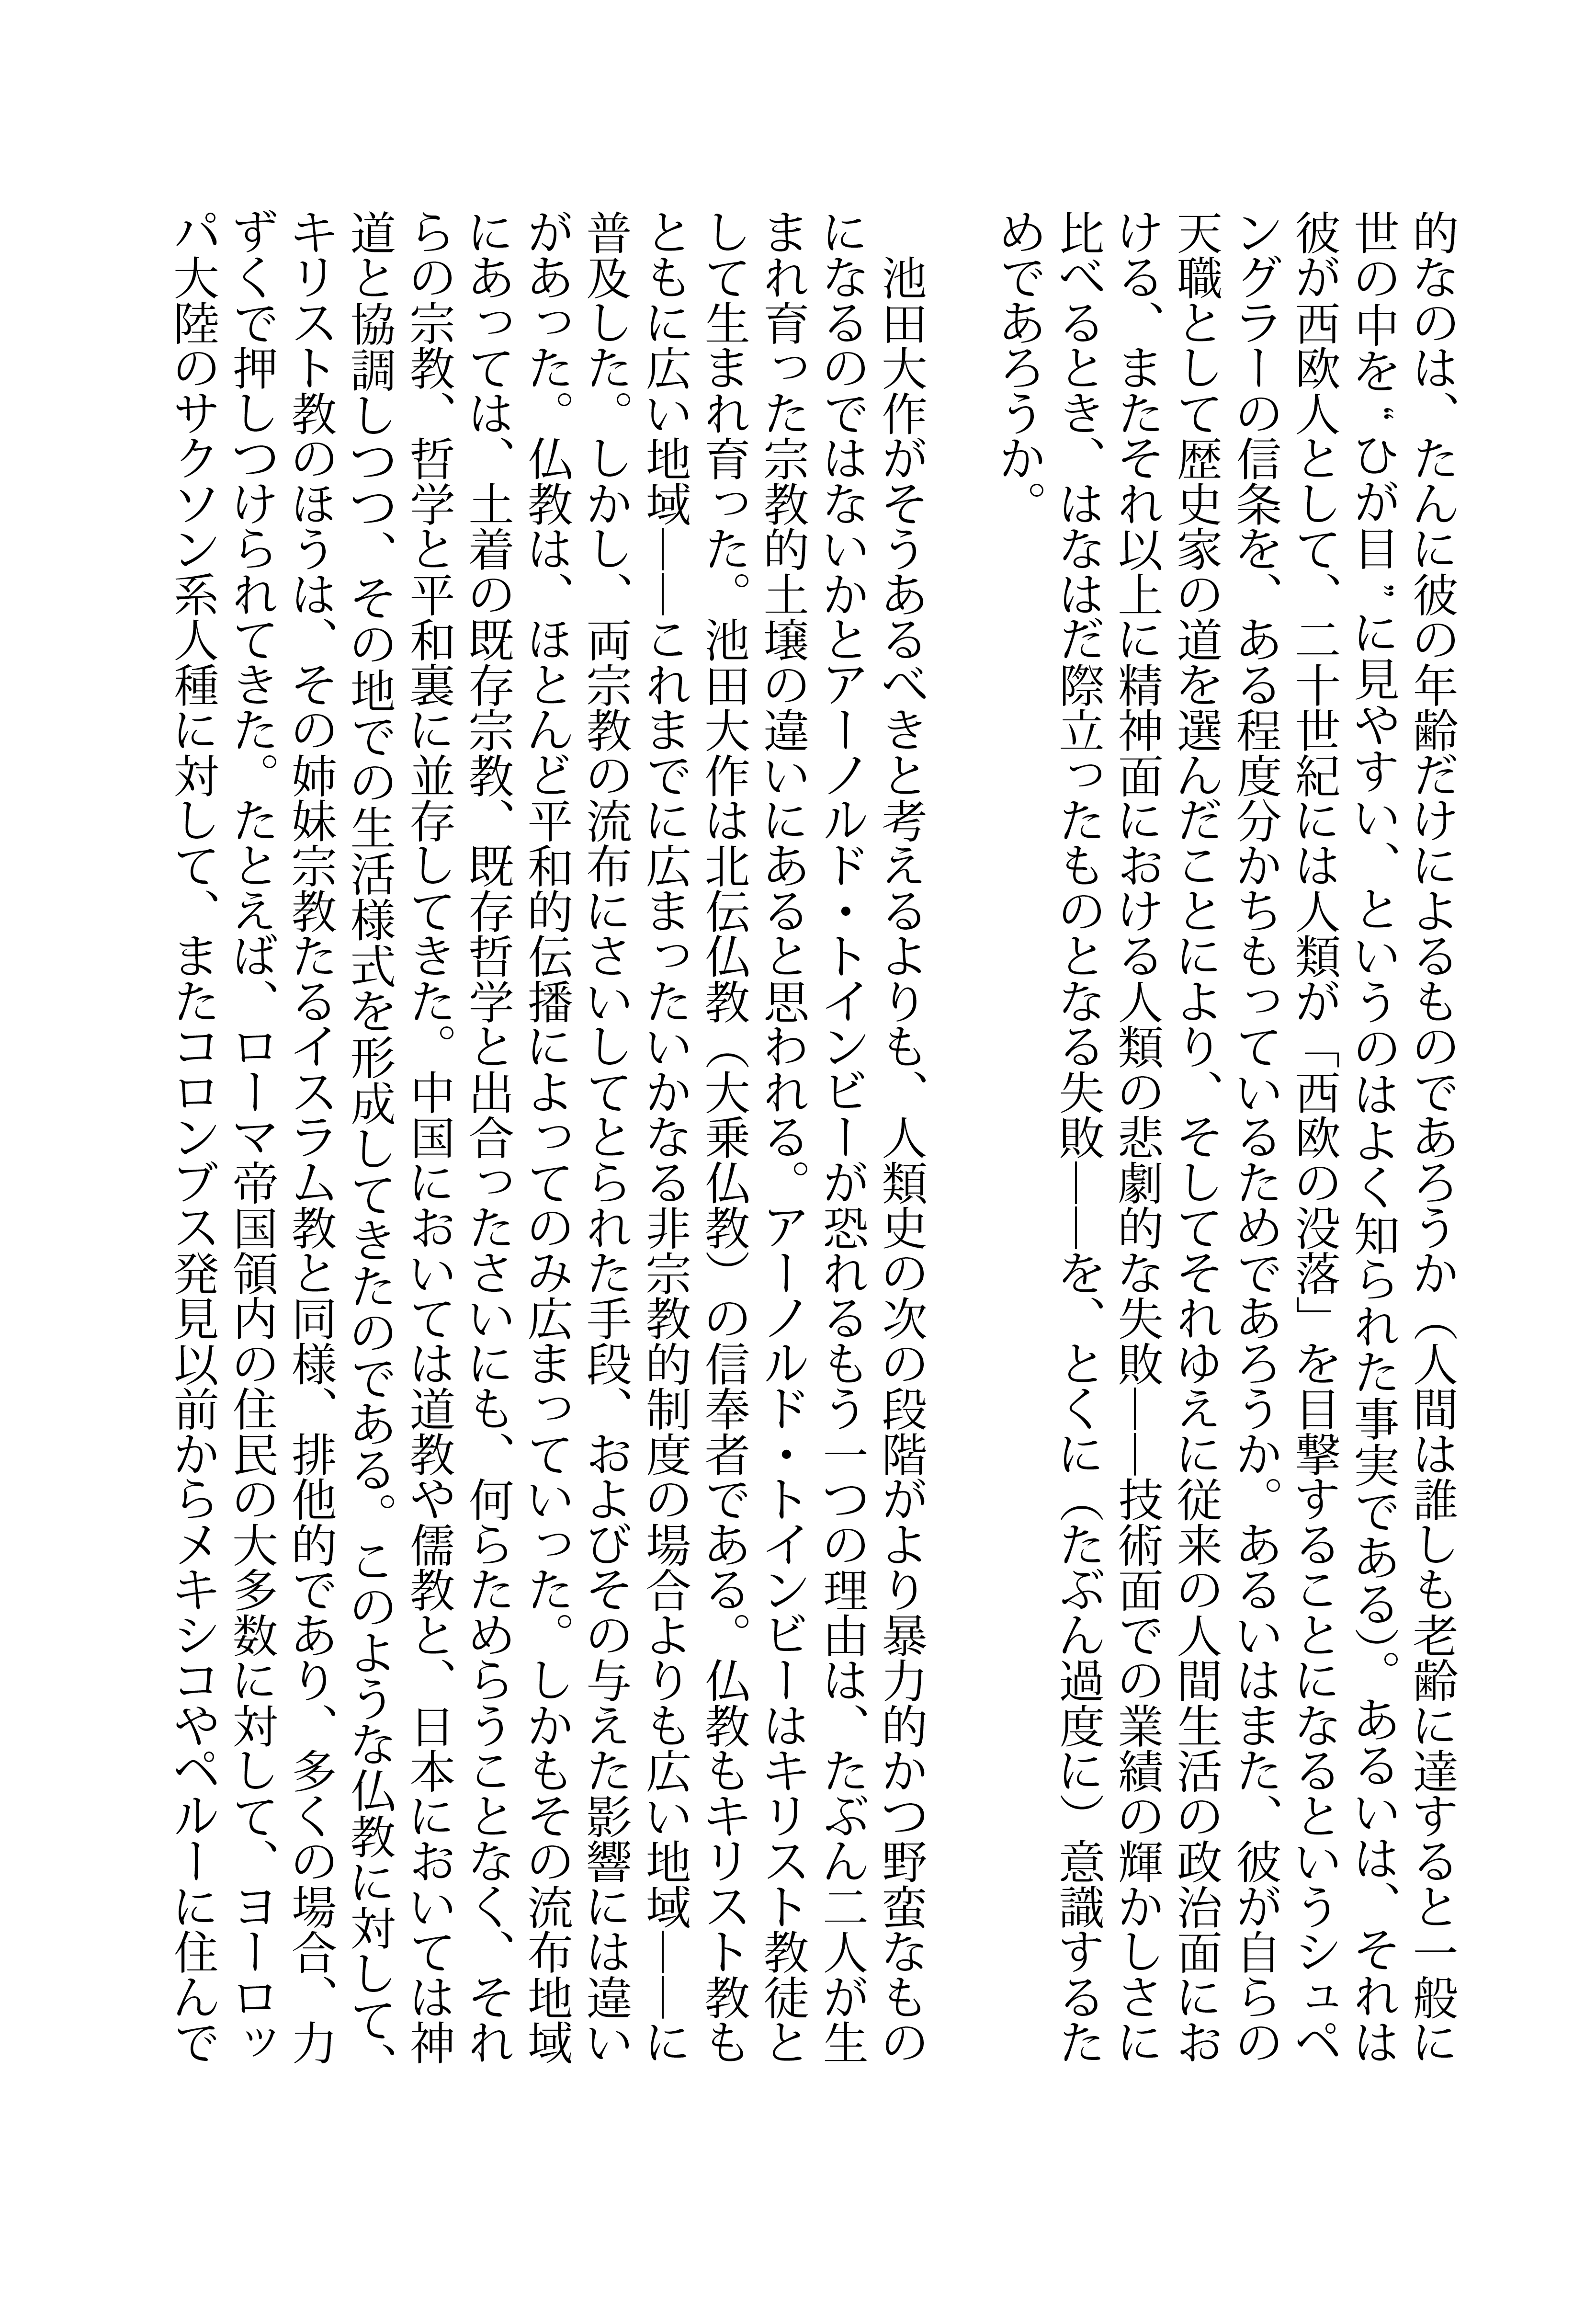 的なのは、たんに彼の年齢だけによるものであろうか（人間は誰しも老齢に達すると一般に
世の中を〝ひが目〟に見やすい、というのはよく知られた事実である）。あるいは、それは
彼が西欧人として、二十世紀には人類が「西欧の没落」を目撃することになるというシュペ
ングラーの信条を、ある程度分かちもっているためであろうか。あるいはまた、彼が自らの
天職として歴史家の道を選んだことにより、そしてそれゆえに従来の人間生活の政治面にお
ける、またそれ以上に精神面における人類の悲劇的な失敗――技術面での業績の輝かしさに
比べるとき、はなはだ際立ったものとなる失敗――を、とくに（たぶん過度に）意識するた
めであろうか。
池田大作がそうあるべきと考えるよりも、人類史の次の段階がより暴力的かつ野蛮なもの
になるのではないかとアーノルド・トインビーが恐れるもう一つの理由は、たぶん二人が生
まれ育った宗教的土壌の違いにあると思われる。アーノルド・トインビーはキリスト教徒と
して生まれ育った。池田大作は北伝仏教（大乗仏教）の信奉者である。仏教もキリスト教も
ともに広い地域――これまでに広まったいかなる非宗教的制度の場合よりも広い地域――に
普及した。しかし、両宗教の流布にさいしてとられた手段、およびその与えた影響には違い
があった。仏教は、ほとんど平和的伝播によってのみ広まっていった。しかもその流布地域
にあっては、土着の既存宗教、既存哲学と出合ったさいにも、何らためらうことなく、それ
らの宗教、哲学と平和裏に並存してきた。中国においては道教や儒教と、日本においては神
道と協調しつつ、その地での生活様式を形成してきたのである。このような仏教に対して、
キリスト教のほうは、その姉妹宗教たるイスラム教と同様、排他的であり、多くの場合、力
ずくで押しつけられてきた。たとえば、ローマ帝国領内の住民の大多数に対して、ヨーロッ
パ大陸のサクソン系人種に対して、またコロンブス発見以前からメキシコやペルーに住んで